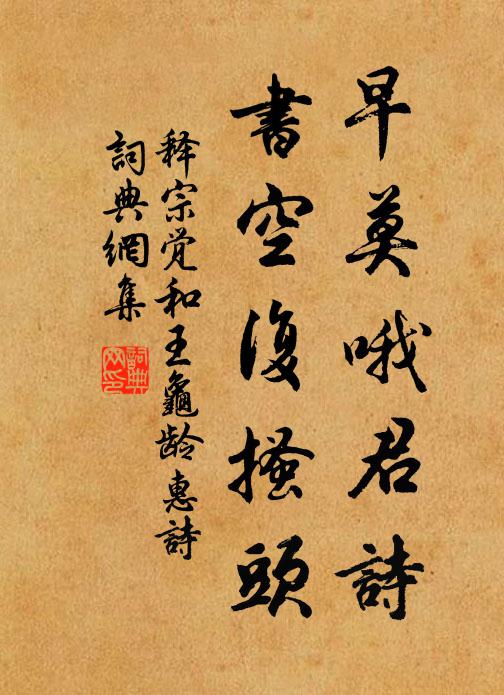 早莫哦君詩
書空復搔頭
释宗觉和王龜龄惠詩
詞典網集
詞典網印